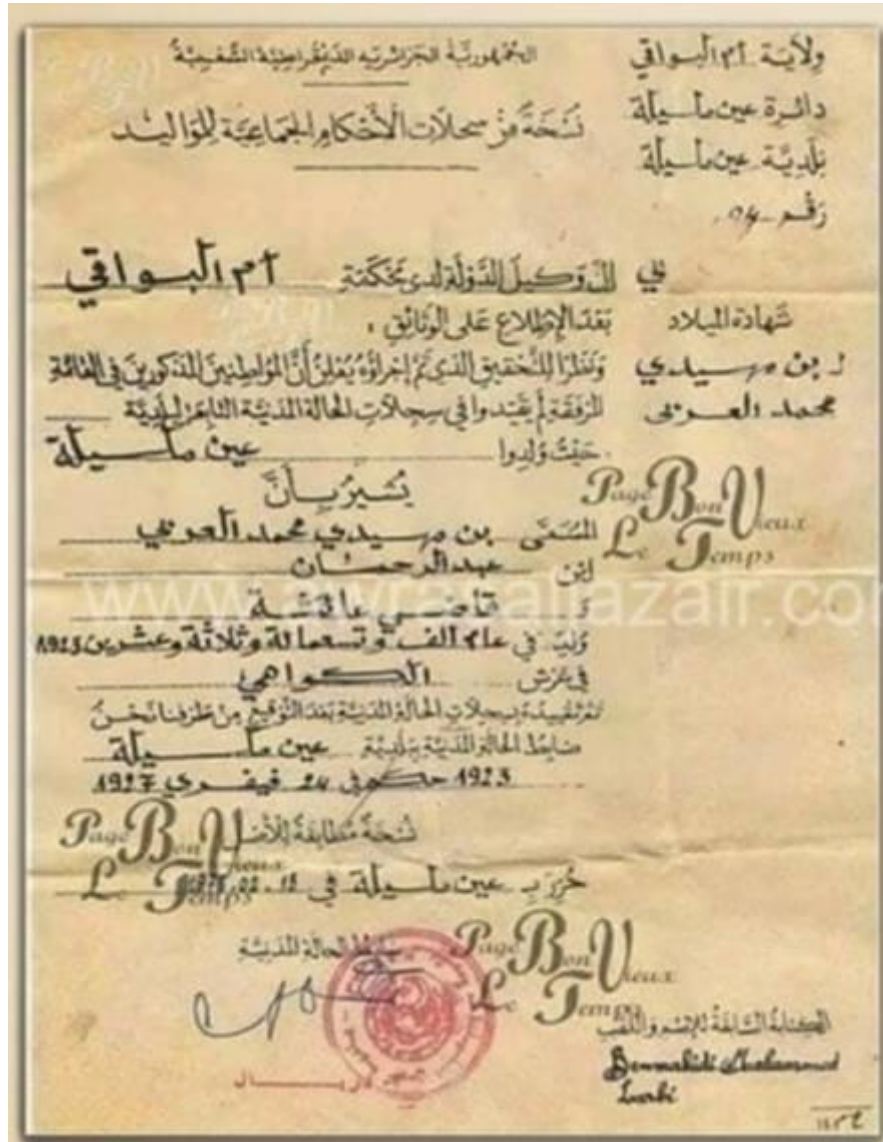 الجمهورية الجزائرية الديمقراطية الشعبية
نسخة من سجلات الأحكام الجماعية للمواليد
ولاية أم البواقي
دائرة عين مليلة
بلدية عين مليلة
رقم
في
شهادة الميلاد
لـ بن مهيدي
محمد العربي
إن وكيل الدولة لدى محكمة أم البواقي
بعد الإطلاع على الوثائق :
ونظرا للتحقيق الذي تم إجراؤه يعلن أن المواطنين المذكورين في القائمة
المرفقة لم يقيدوا في سجلات الحالة المدنية التابعة لبلدية
حيث ولدوا عين مليلة
يشير بأن
المسمى بن مهيدي محمد العربي
ابن عبد الرحمان
و قاضي عائشة
ولد في عام ألف وتسعمائة وثلاثة وعشرين 1923
في عرش الكواهي
تم تقييده بسجلات الحالة المدنية بعد التوقيع من طرفنا نحن
ضابط الحالة المدنية ببلدية عين مليلة
1923 حكم في 24 فيفري 1927
نسخة مطابقة للأصل
حرر بـ عين مليلة في
ضابط الحالة المدنية
الكتابة السابقة للإسم واللقب
Benmahidi Mohammed
Larbi
Page Bon Vieux
Le Temps
Page Bon Vieux
Le Temps
Page Bon Vieux
Le Temps